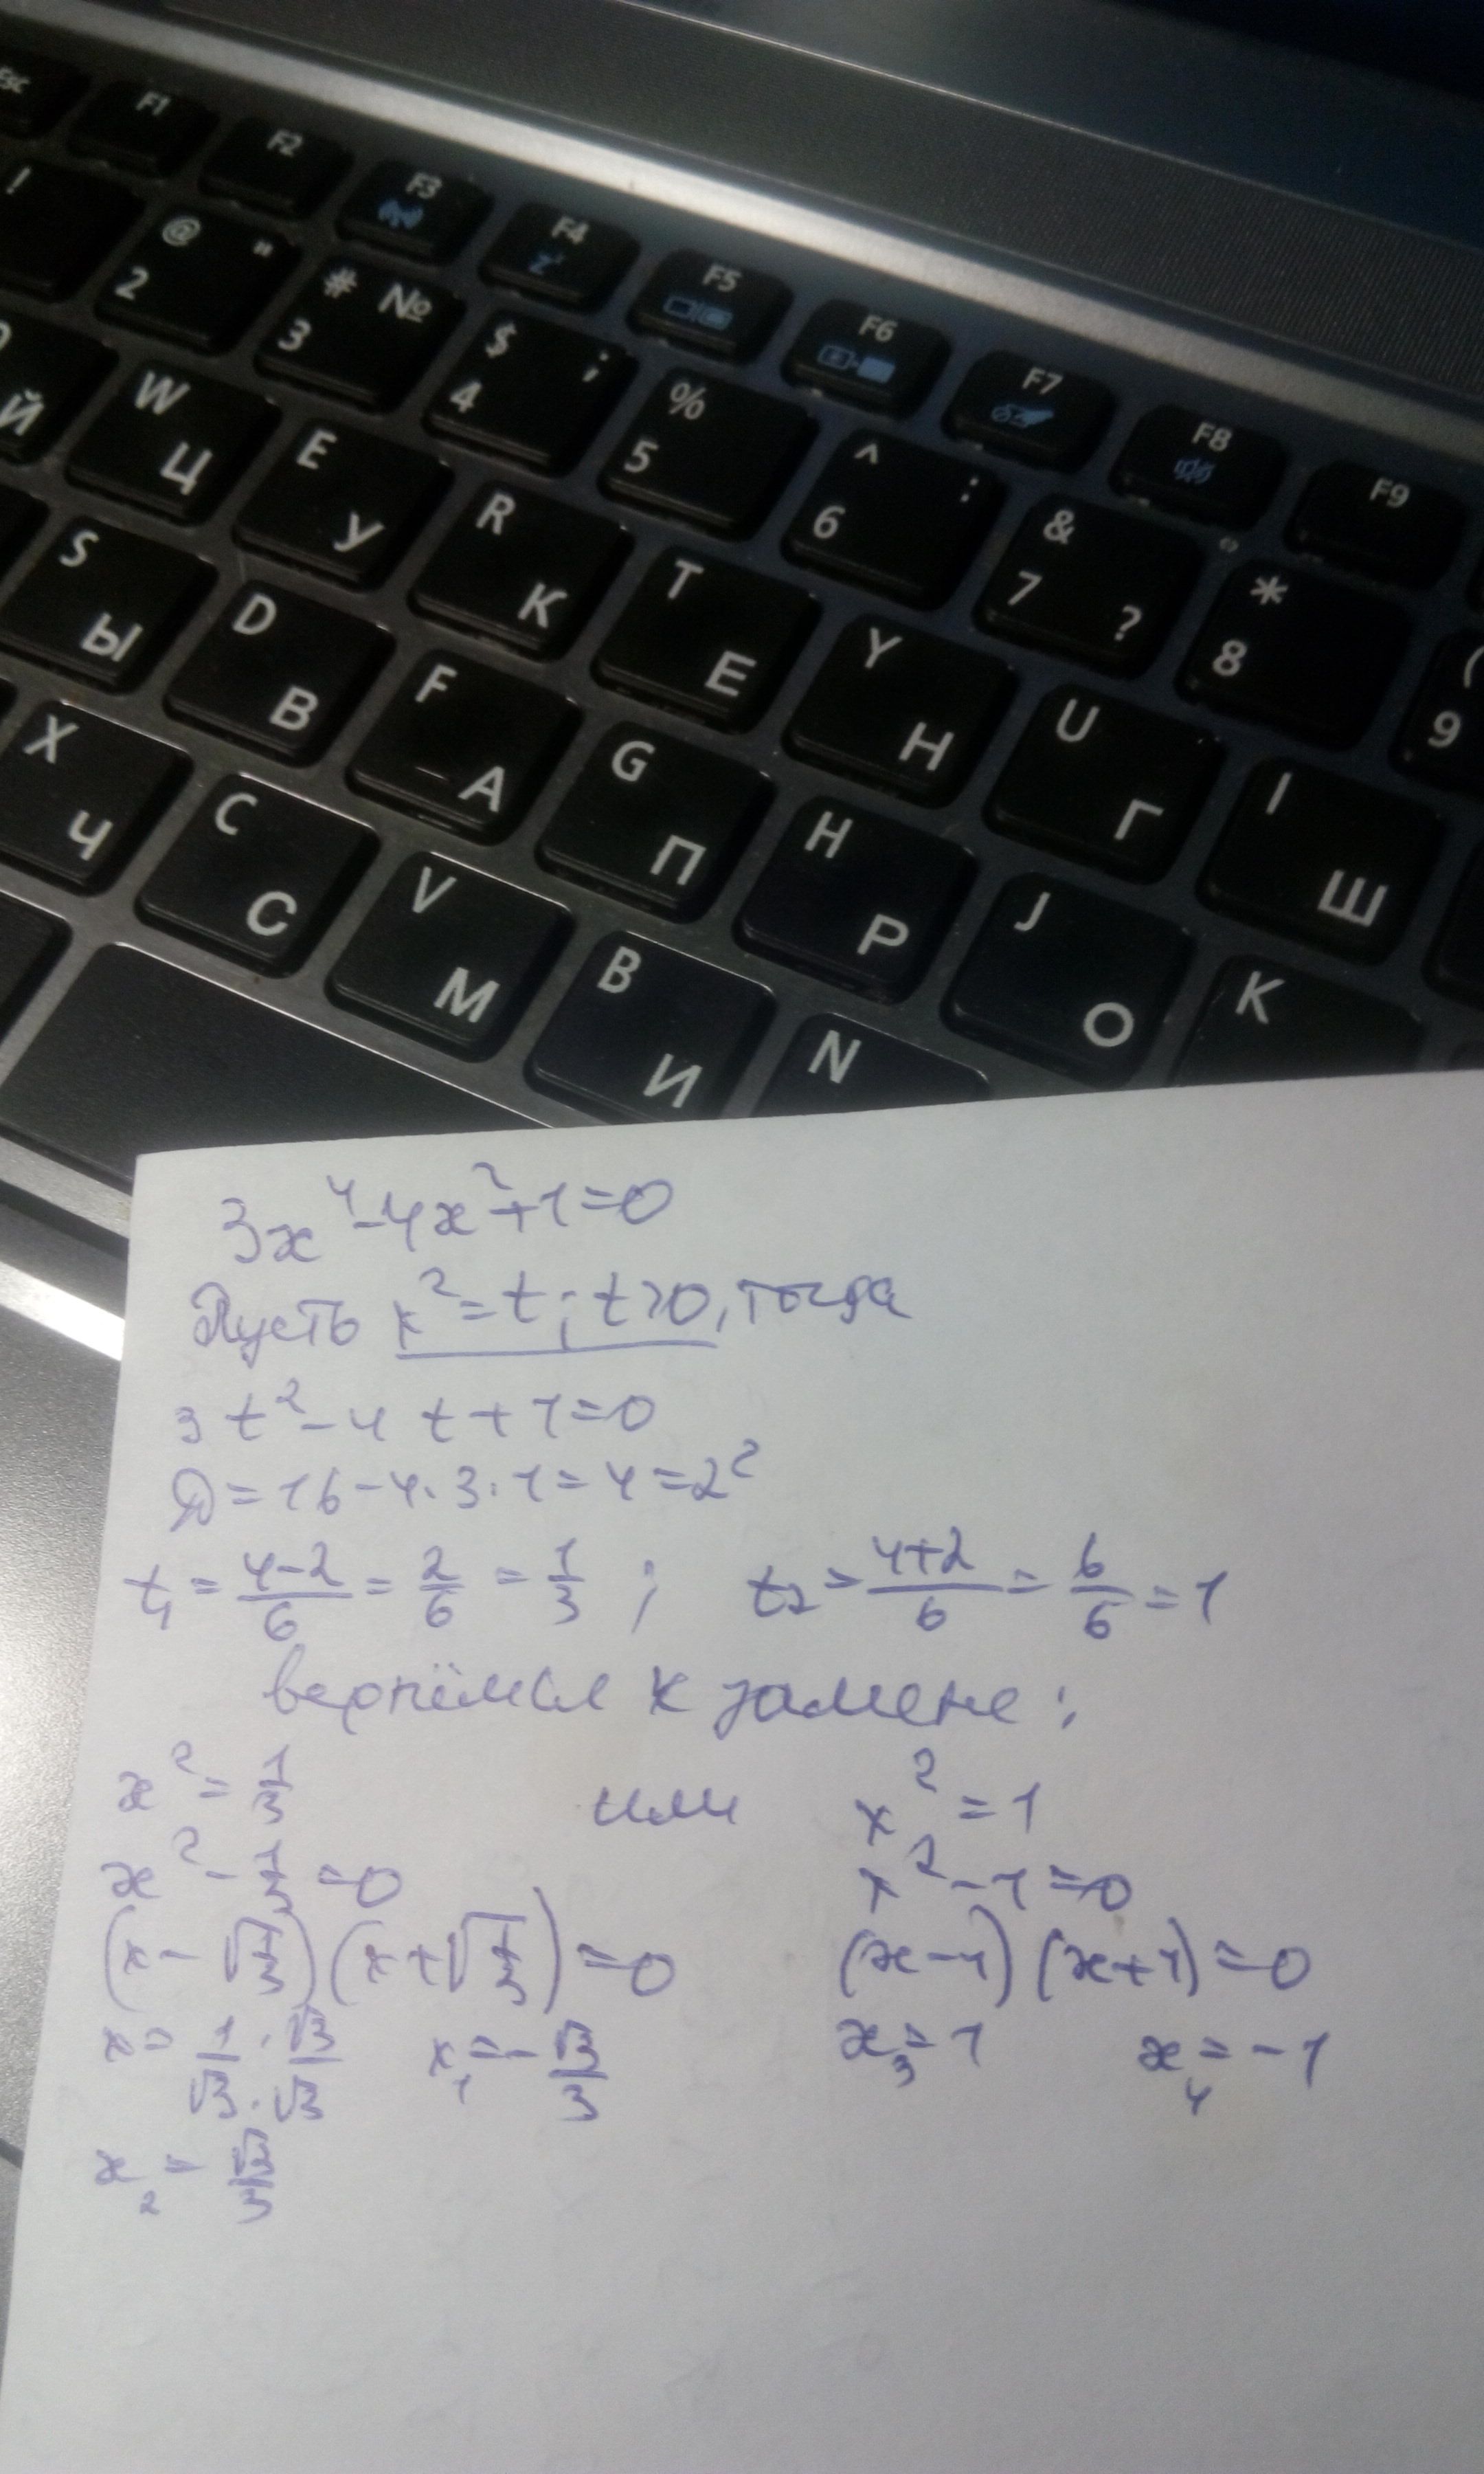 Esc F1 F2 F3 F4 F5 F6 F7 F8 F9
! @ " 2 # № 3 $ ; 4 % 5 ^ : 6 & 7 ? * 8 ( 9
Й W Ц E У R К T Е Y Н U Г I Ш
S Ы D В F А G П H Р J О K
X Ч C С V М B И N
3x⁴-4x²+1=0
Пусть x²=t; t>0, тогда
3t²-4t+1=0
D=16-4·3·1=4=2²
t₁ = (4-2)/6 = 2/6 = 1/3 ; t₂ = (4+2)/6 = 6/6 = 1
вернёмся к замене:
x² = 1/3 или x² = 1
x² - 1/3 = 0 x² - 1 = 0
(x - √(1/3)) (x + √(1/3)) = 0 (x-1) (x+1) = 0
x = 1/√3 · √3/√3 x₁ = - √3/3 x₃ = 1 x₄ = -1
x₂ = √3/3